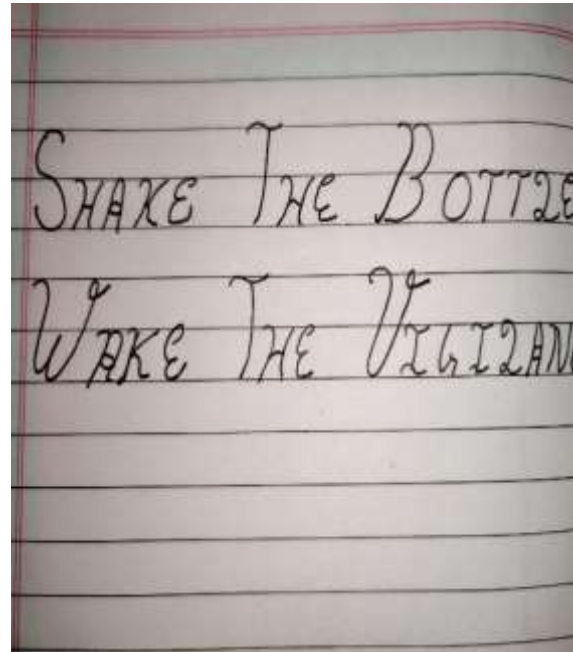 Shake The Bottle
Wake The Vigilan